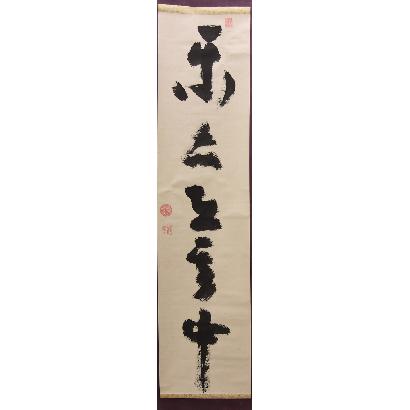 樂亦在其中